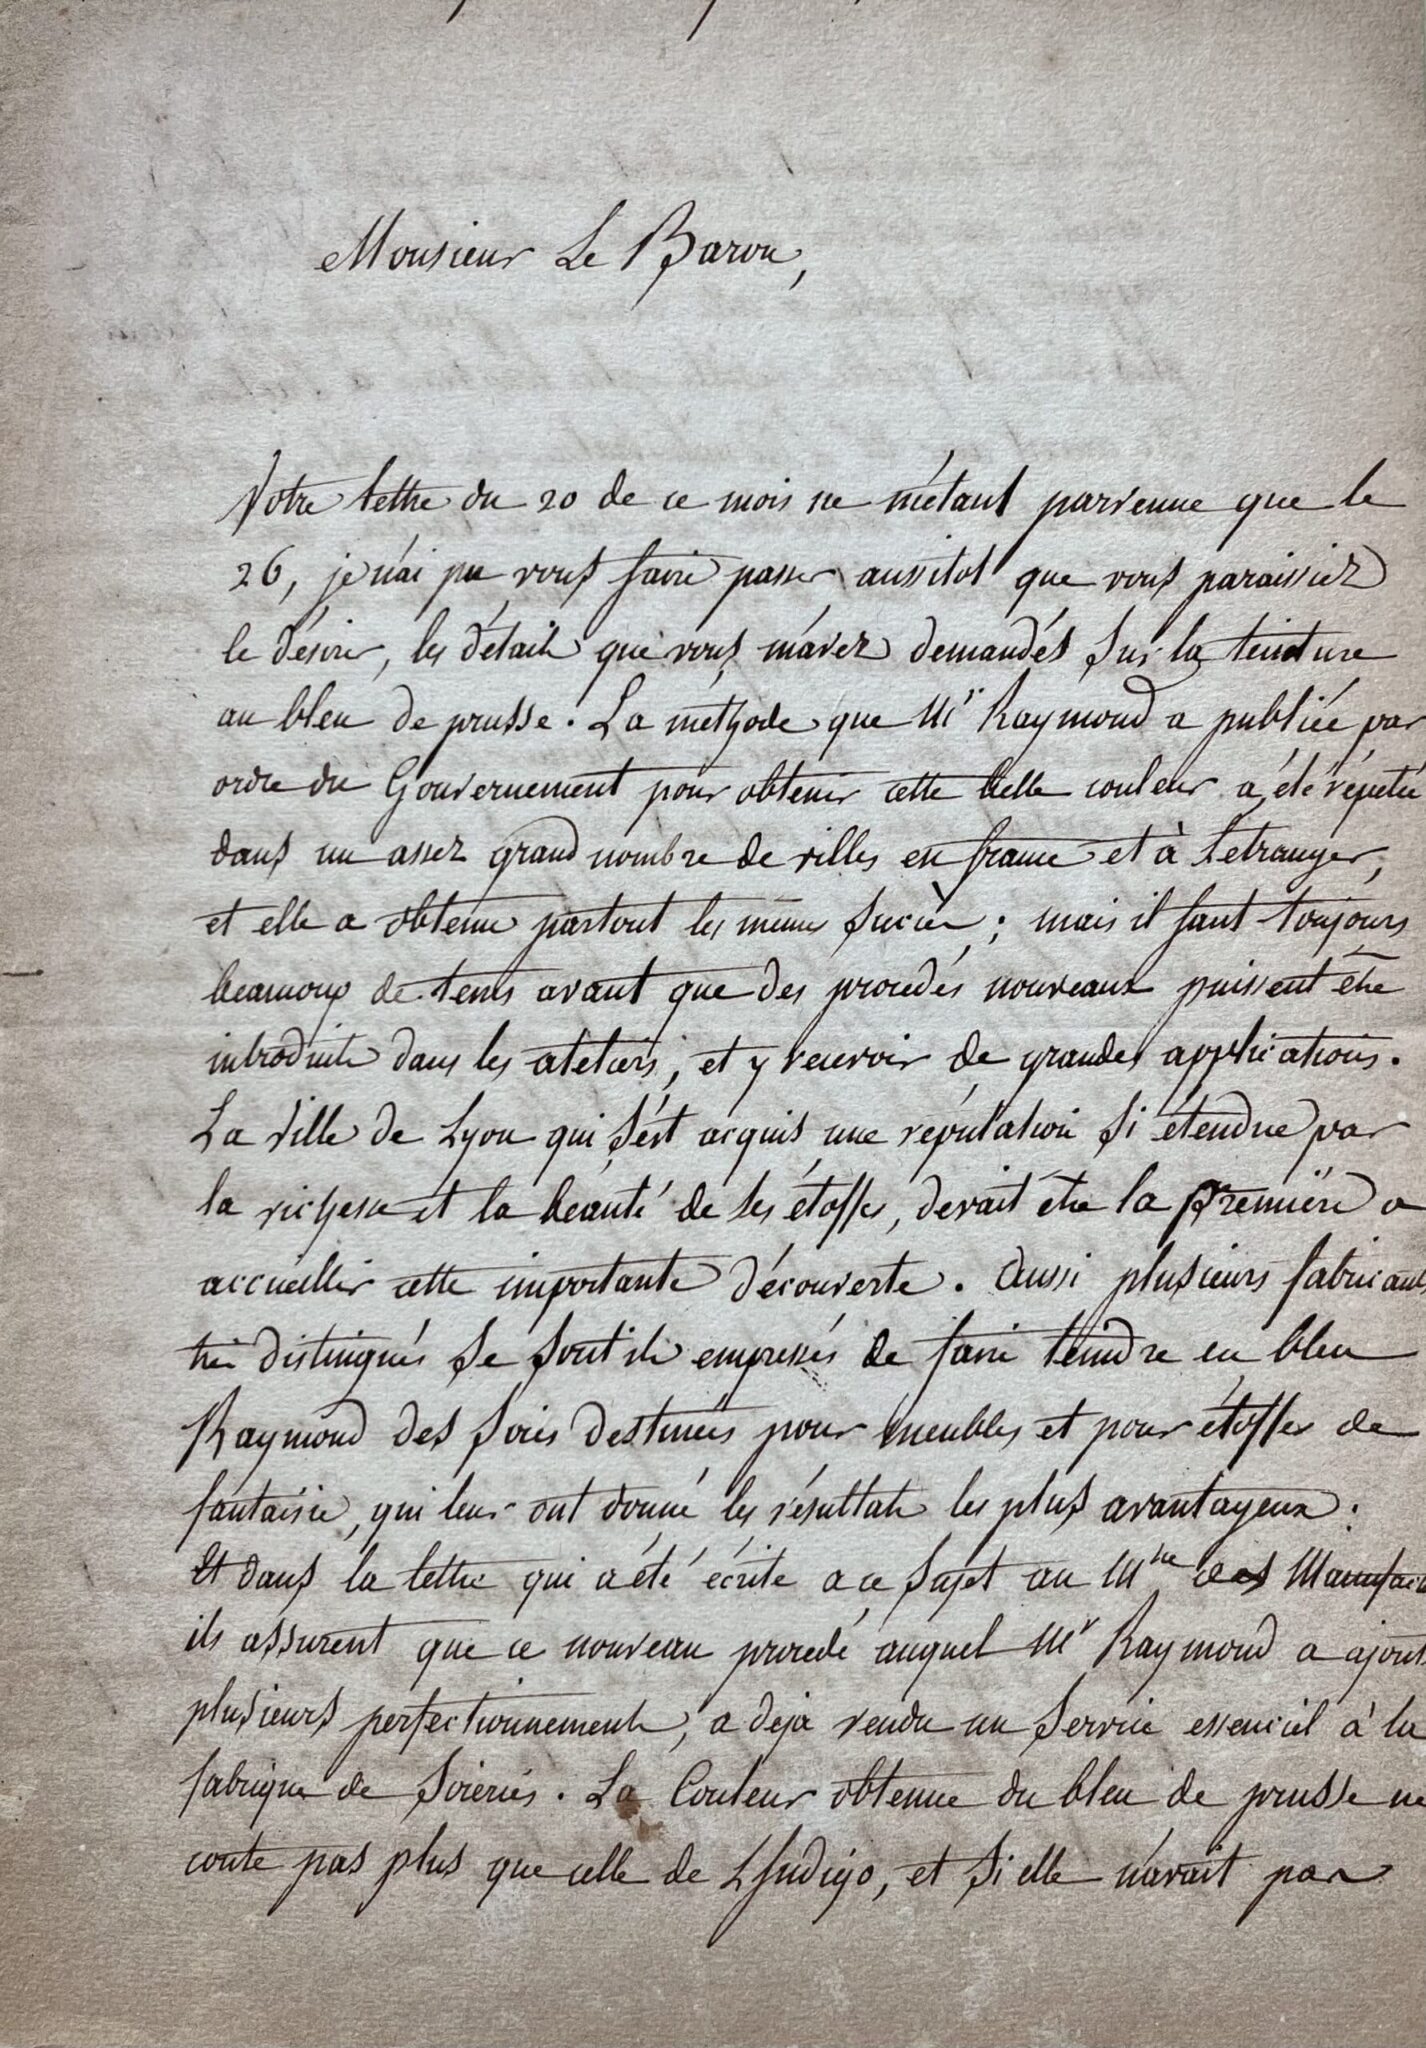 Monsieur Le Baron,
Votre lettre du 20 de ce mois ne m'étant parvenue que le
26, je n'ai pu vous faire passer aussitot que vous paraissiez
le désirer, les détails que vous m'avez demandés sur la teinture
au bleu de prusse. La méthode que Mr Raymond a publiée par
ordre du Gouvernement pour obtenir cette belle couleur a été répetée
dans un assez grand nombre de villes en france et à l'etranger,
et elle a obtenu partout les mêmes succès ; mais il faut toujours
beaucoup de tems avant que des procédés nouveaux puissent être
introduits dans les ateliers, et y recevoir de grandes applications.
La Ville de Lyon qui s'est acquis une réputation si étendue par
la richesse et la beauté de ses étoffes, devait être la première a
accueillir cette importante découverte. Aussi plusieurs fabricants
très distingués se sont ils empressés de faire teindre en bleu
Raymond des soies destinées pour meubles et pour étoffes de
fantaisie, qui leur ont donné les résultats les plus avantageux :
Et dans la lettre qui a été écrite a ce sujet au Mtre des Manufact
ils assurent que ce nouveau procédé auquel Mr Raymond a ajouté
plusieurs perfectionnements, a déja rendu un service essenciel à la
fabrique de soieries. La Couleur obtenue du bleu de prusse ne
coute pas plus que celle de L'Indigo, et si elle n'avait pas